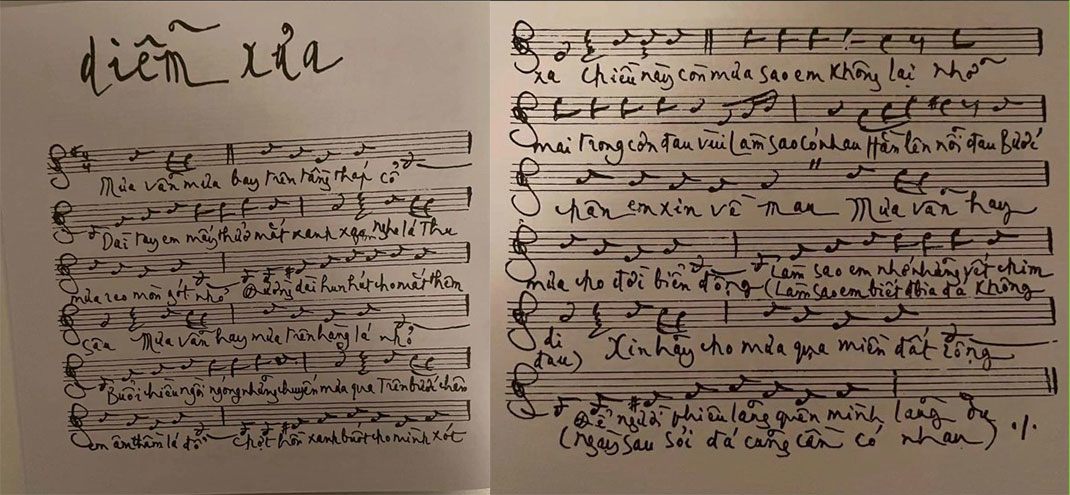 diễm xưa
Mưa vẫn mưa bay trên tầng tháp cổ
Dài tay em mấy thuở mắt xanh xao nghe lá Thu
mưa reo mòn gót nhỏ Đường dài hun hút cho mắt thêm
sâu Mưa vẫn hay mưa trên hàng lá nhỏ
Buổi chiều ngồi ngóng những chuyến mưa qua Trên bước chân
em âm thầm lá đổ Chợt hồn xanh buốt cho mình xót
xa Chiều này còn mưa sao em không lại nhỡ
mai trong cơn đau vùi Làm sao có nhau Hằn lên nỗi đau Bước
chân em xin về mau Mưa vẫn hay
mưa cho đời biển động Làm sao em nhớ những vết chim
(Làm sao em biết bia đá không
di
đau) Xin hãy cho mưa qua miền đất rộng
Để người phiêu lãng quên mình lãng du
(ngày sau sỏi đá cũng cần có nhau)